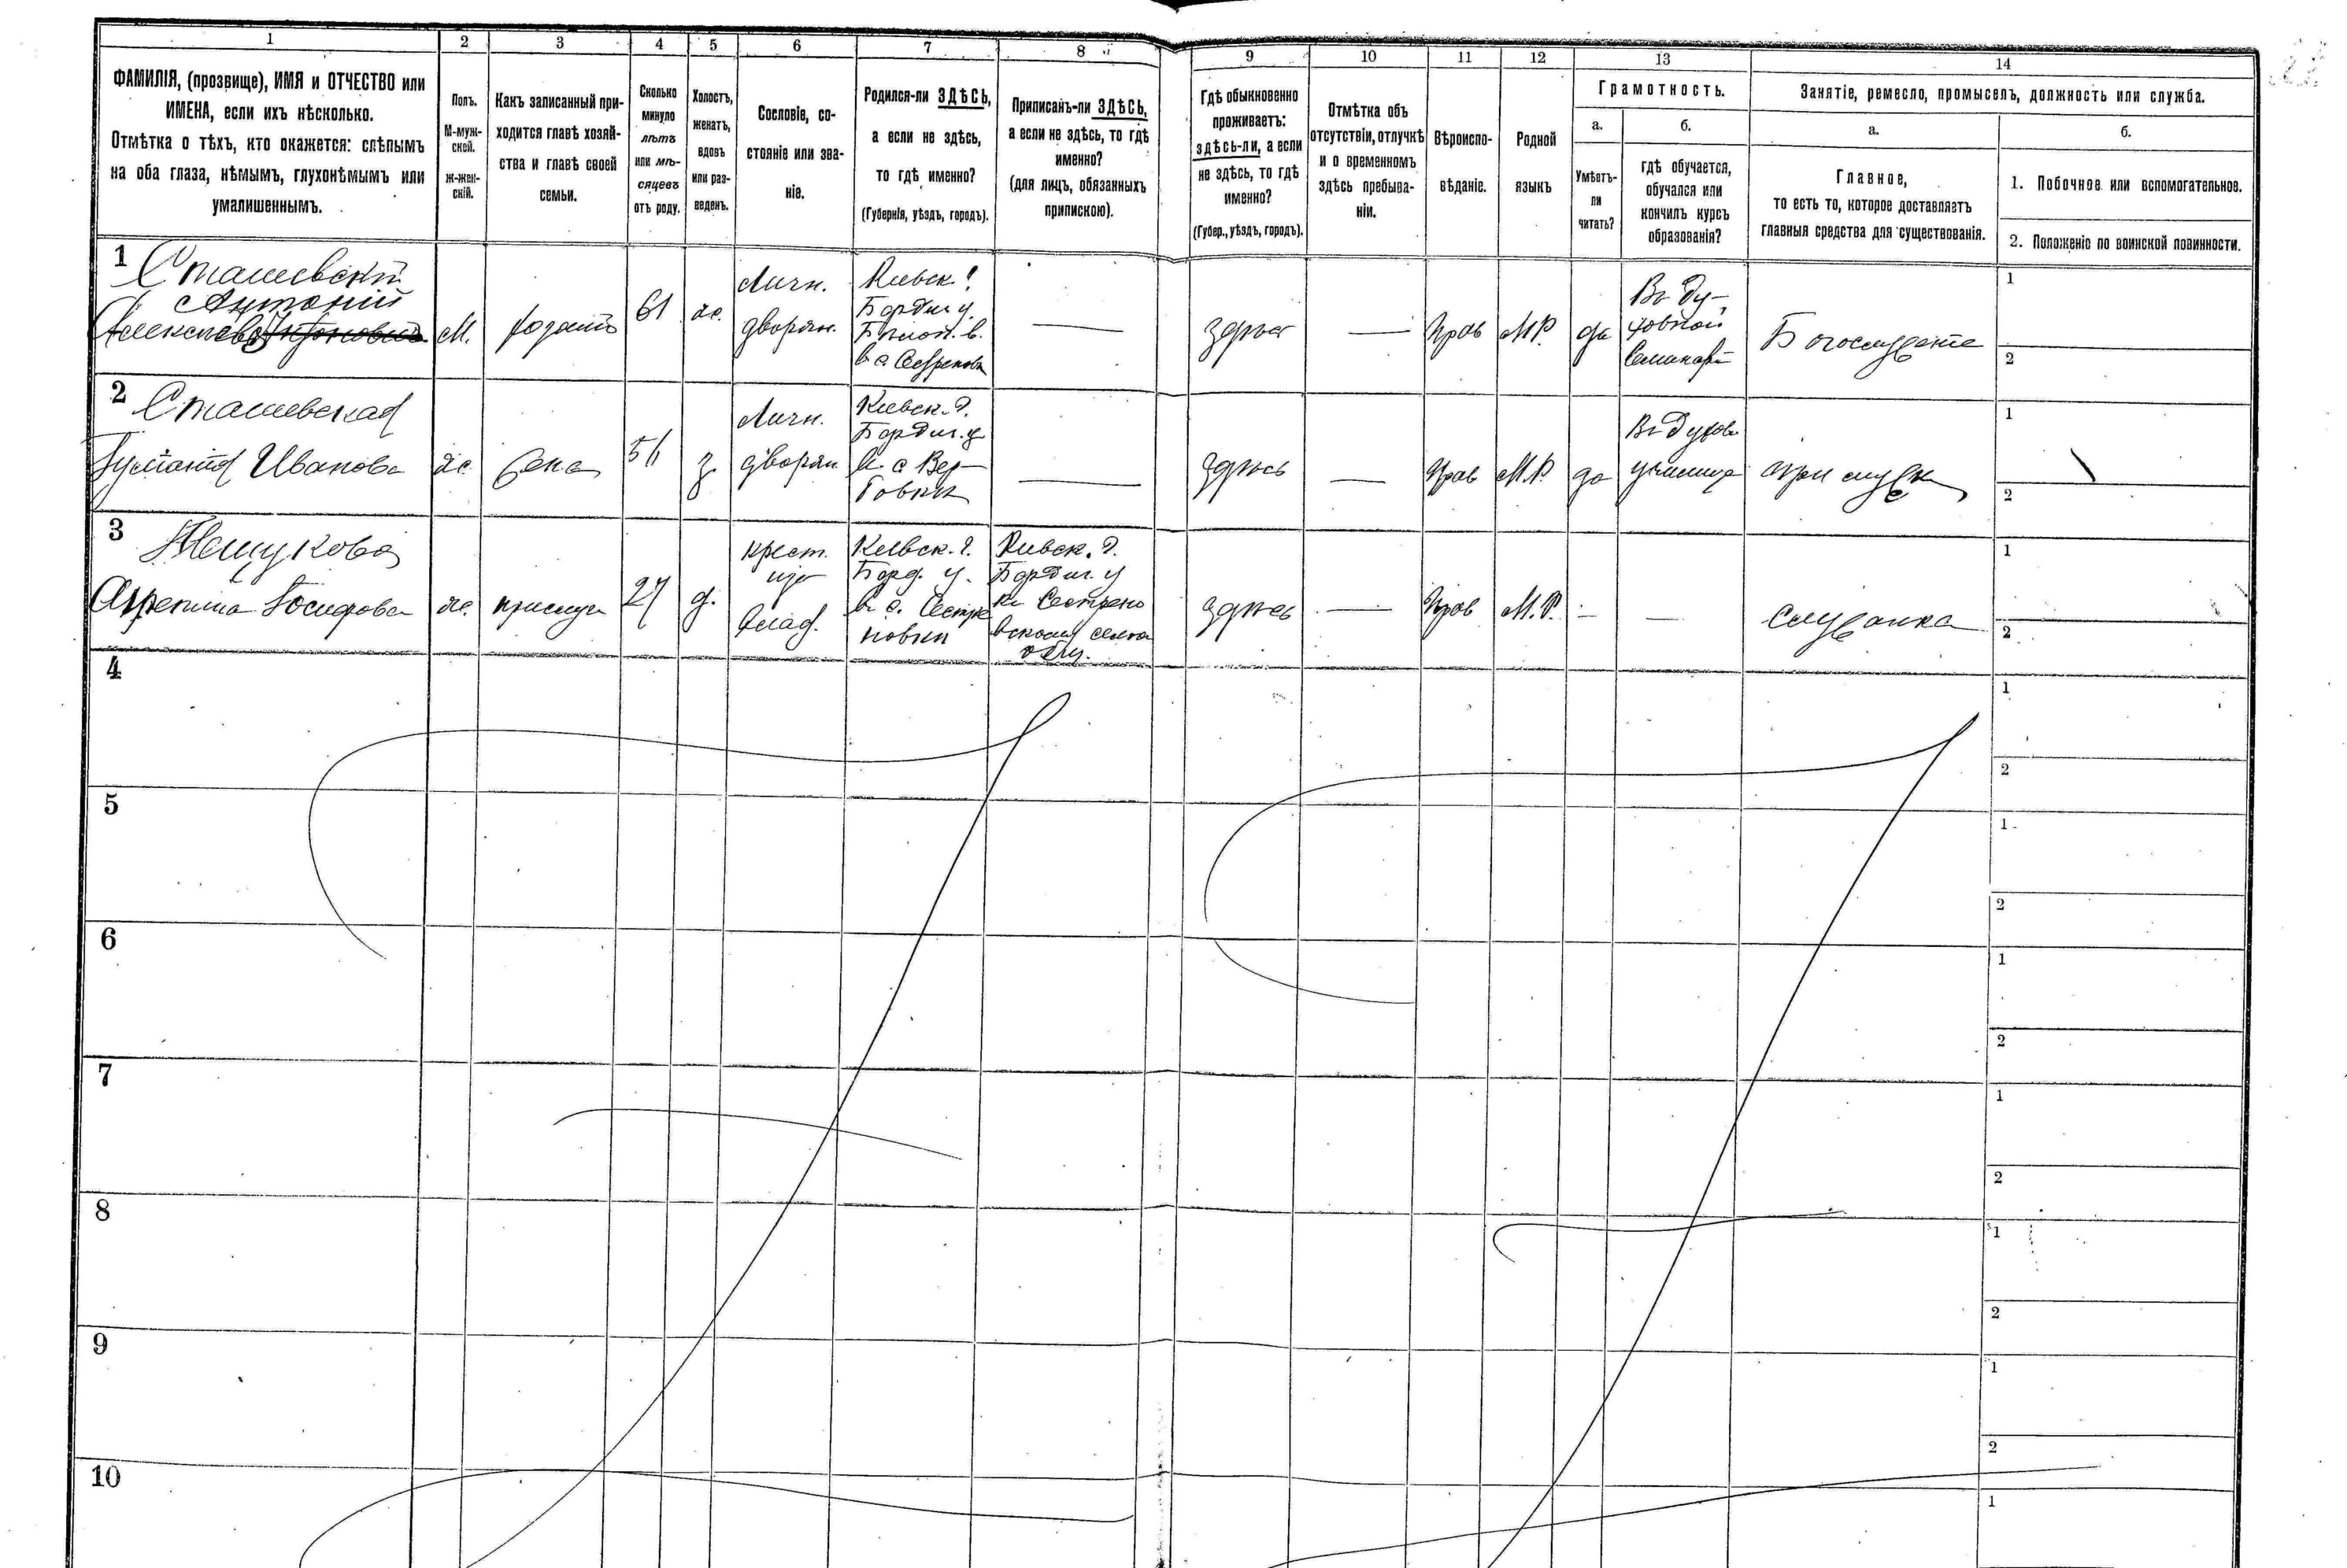 1 2 3 4 5 6 7 8 9 10 11 12 13 14
ФАМИЛІЯ, (прозвище), ИМЯ и ОТЧЕСТВО или
ИМЕНА, если ихъ нѣсколько.
Отмѣтка о тѣхъ, кто окажется: слѣпымъ
на оба глаза, нѣмымъ, глухонѣмымъ или
умалишеннымъ.
Полъ.
М-муж-
ской.
ж-жен-
скій.
Какъ записанный при-
ходится главѣ хозяй-
ства и главѣ своей
семьи.
Сколько
минуло
лѣтъ
или мѣ-
сяцевъ
отъ роду.
Холостъ,
женатъ,
вдовъ
или раз-
веденъ.
Сословіе, со-
стояніе или зва-
ніе.
Родился-ли ЗДѢСЬ,
а если не здѣсь,
то гдѣ именно?
(Губернія, уѣздъ, городъ).
Приписанъ-ли ЗДѢСЬ,
а если не здѣсь, то гдѣ
именно?
(для лицъ, обязанныхъ
припискою).
Гдѣ обыкновенно
проживаетъ:
здѣсь-ли, а если
не здѣсь, то гдѣ
именно?
(Губер., уѣздъ, городъ).
Отмѣтка объ
отсутствіи, отлучкѣ
и о временномъ
здѣсь пребыва-
ніи.
Вѣроиспо-
вѣданіе.
Родной
языкъ
Грамотность.
а.
Умѣетъ-
ли
читать?
б.
гдѣ обучается,
обучался или
кончилъ курсъ
образованія?
Занятіе, ремесло, промыселъ, должность или служба.
а.
Главное,
то есть то, которое доставляетъ
главныя средства для существованія.
б.
1. Побочное или вспомогательное.
2. Положеніе по воинской повинности.
1
Сташевскій
Антоній
Алексѣевъ
М.
хозяинъ
61
ж.
Личн.
дворян.
Кіевск. г.
Бердич. у.
в.
в с
здѣсь
Прав
М.Р.
да
Въ ду-
ховной
Семинаріи
Богослуженіе
1
2
2
Сташевская
Иванова
ж.
жена
51
з.
Личн.
дворян.
Кіевск. г.
Бердич. у.
в. с Вер-
ховнѣ
здѣсь
Прав
М.Р.
да
Въ духов.
училищѣ
при мужѣ
1
2
3
Агрепина Іосифова
ж.
прислуга
27
д.
крест.
изъ
влад.
Кіевск. г.
Берд. у.
в с. Сестре
новки
Кіевск. г.
Бердич. у
къ Сестрено
вскому сельск
общ.
здѣсь
Прав
М.Р.
служанка
1
2
4
1
2
5
1
2
6
1
2
7
1
2
8
1
2
9
1
2
10
1